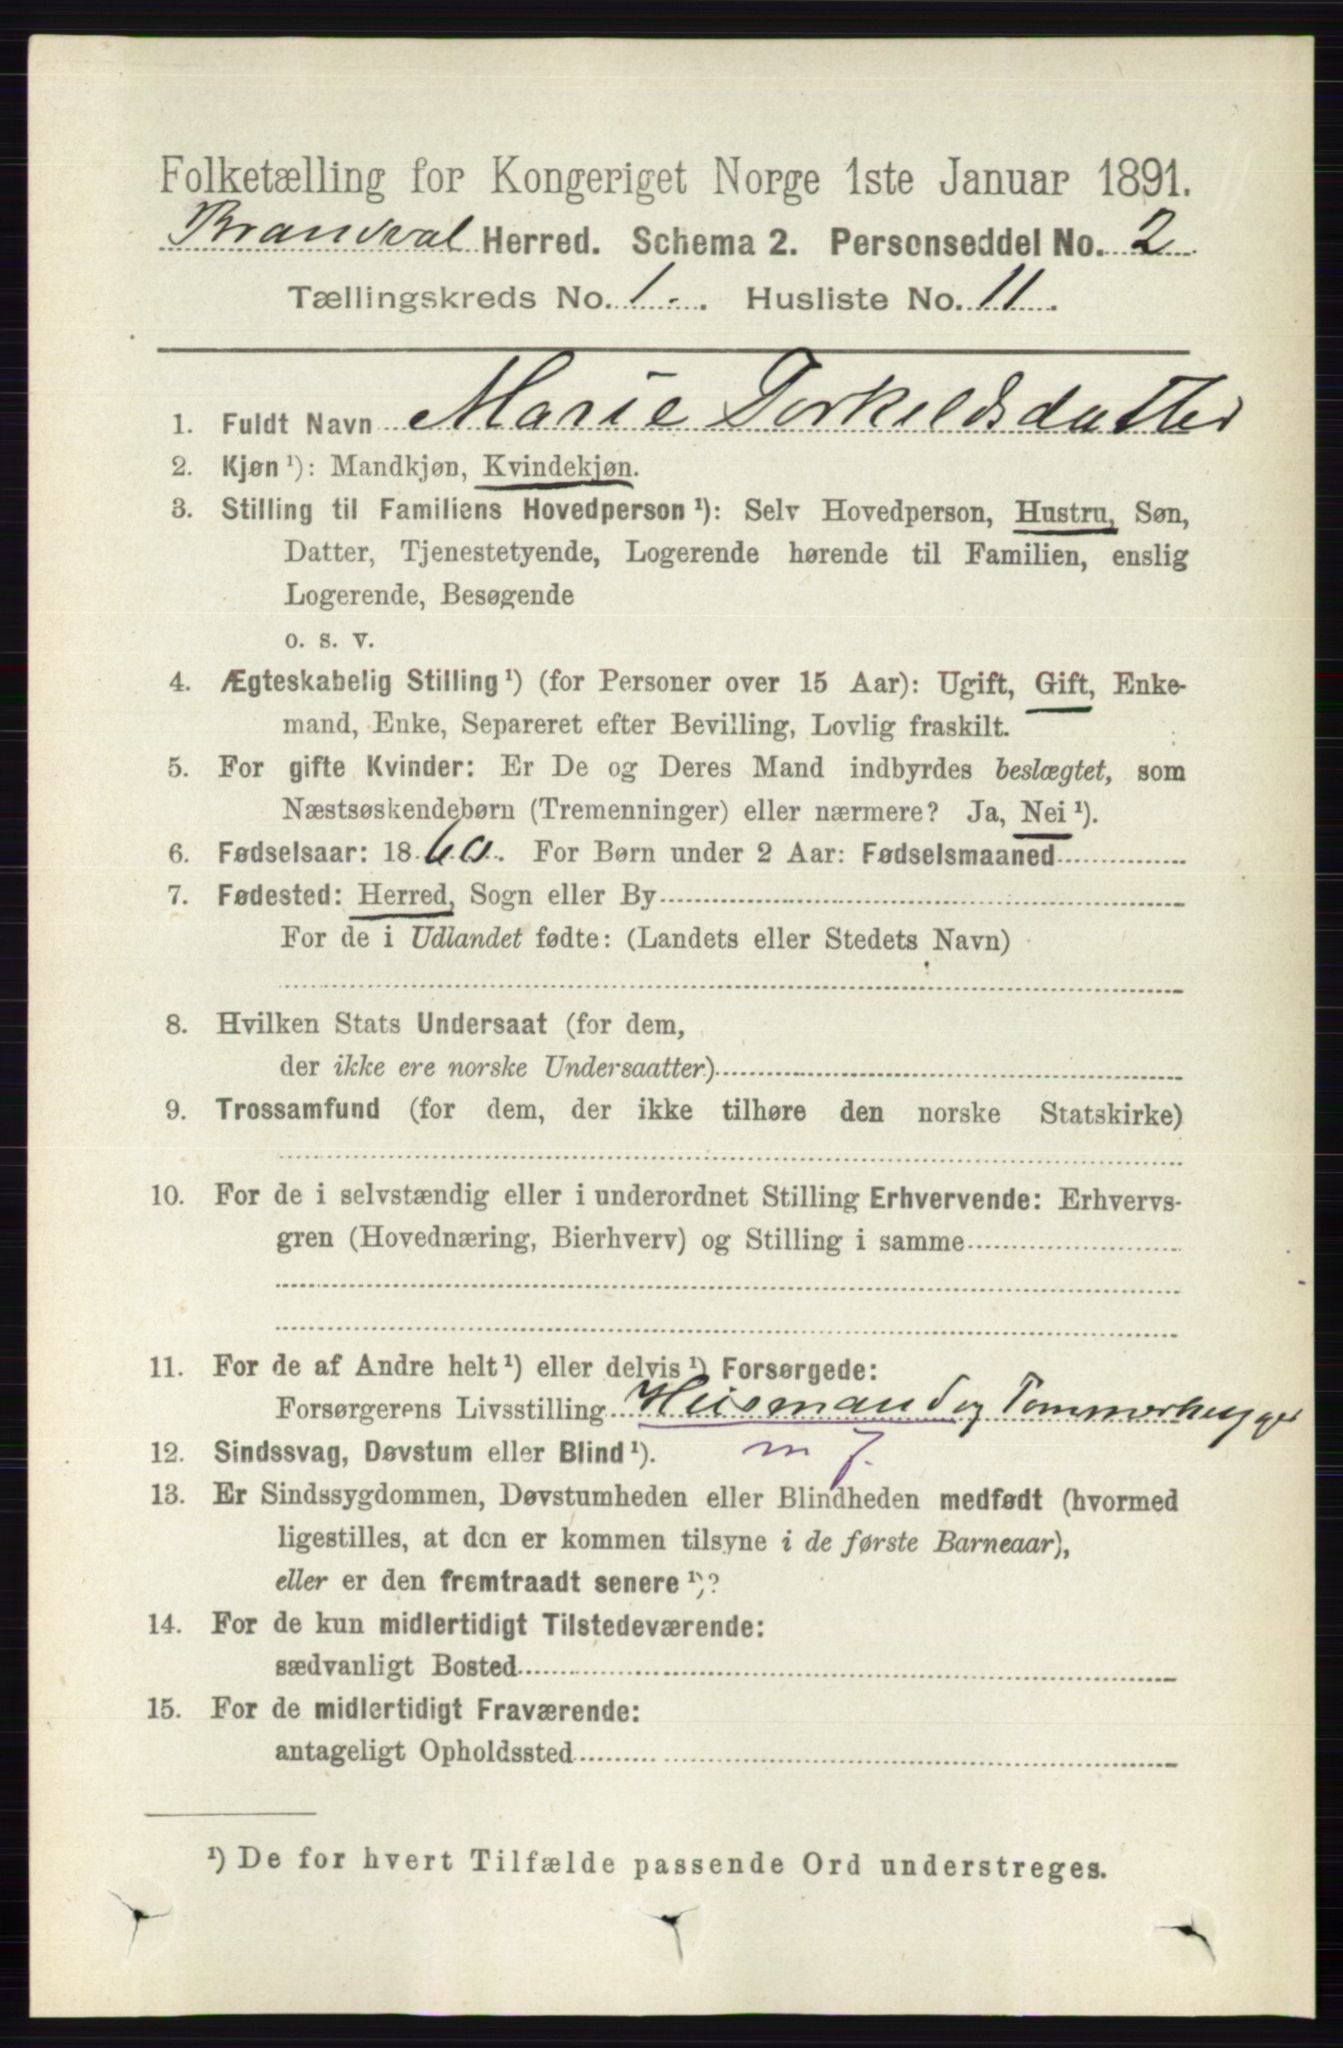 Folketælling for Kongeriget Norge 1ste Januar 1891.
Brandval Herred. Schema 2. Personseddel No. 2
Tællingskreds No. 1. Husliste No. 11.
1. Fuldt Navn Marie Torkeldsdatter
2. Kjøn ¹): Mandkjøn, Kvindekjøn.
3. Stilling til Familiens Hovedperson ¹): Selv Hovedperson, Hustru, Søn,
Datter, Tjenestetyende, Logerende hørende til Familien, enslig
Logerende, Besøgende
o. s. v.
4. Ægteskabelig Stilling ¹) (for Personer over 15 Aar): Ugift, Gift, Enke-
mand, Enke, Separeret efter Bevilling, Lovlig fraskilt.
5. For gifte Kvinder: Er De og Deres Mand indbyrdes beslægtet, som
Næstsøskendebørn (Tremenninger) eller nærmere? Ja, Nei ¹).
6. Fødselsaar: 1860. For Børn under 2 Aar: Fødselsmaaned
7. Fødested: Herred, Sogn eller By
For de i Udlandet fødte: (Landets eller Stedets Navn)
8. Hvilken Stats Undersaat (for dem,
der ikke ere norske Undersaatter)
9. Trossamfund (for dem, der ikke tilhøre den norske Statskirke)
10. For de i selvstændig eller i underordnet Stilling Erhvervende: Erhvervs-
gren (Hovednæring, Bierhverv) og Stilling i samme
11. For de af Andre helt ¹) eller delvis ¹) Forsørgede:
Forsørgerens Livsstilling Husmand og Tømmerhugger
12. Sindssvag, Døvstum eller Blind ¹). m 7.
13. Er Sindssygdommen, Døvstumheden eller Blindheden medfødt (hvormed
ligestilles, at den er kommen tilsyne i de første Barneaar),
eller er den fremtraadt senere ¹)?
14. For de kun midlertidigt Tilstedeværende:
sædvanligt Bosted
15. For de midlertidigt Fraværende:
antageligt Opholdssted
¹) De for hvert Tilfælde passende Ord understreges.